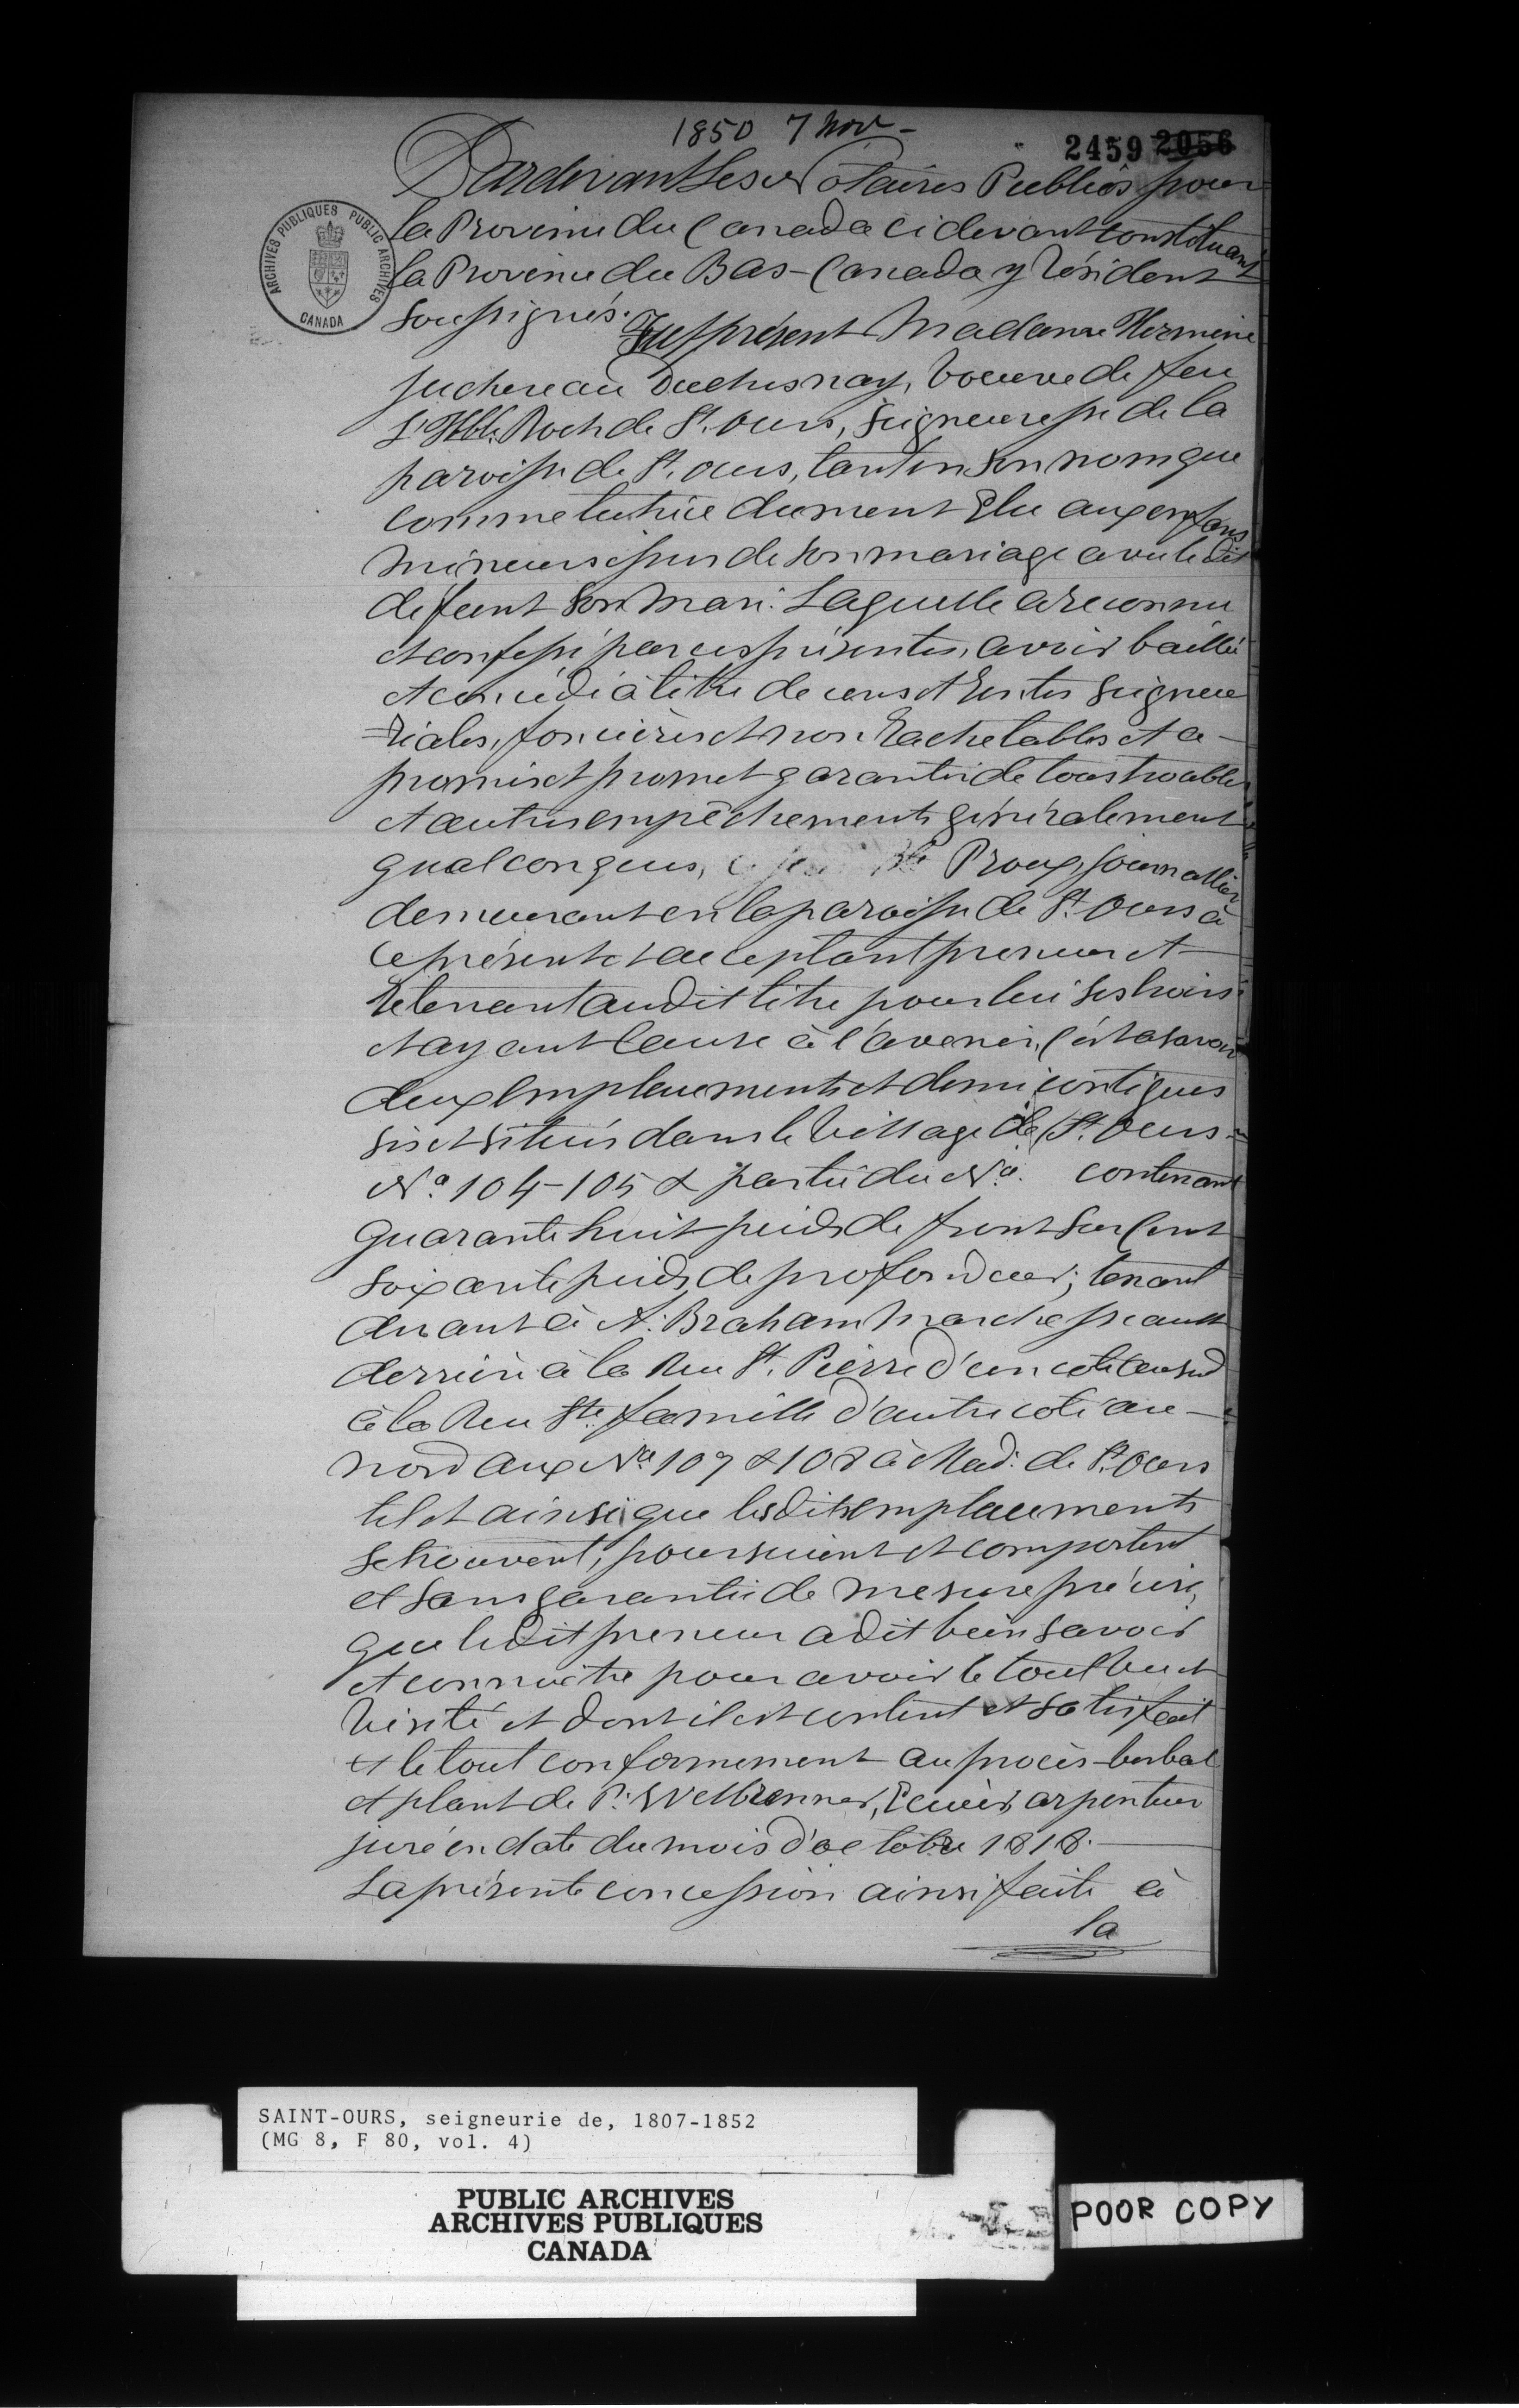 1850 7 Nov -
2459 2056
Pardevant Les Notaires Publics pour
la Province du Canada ci devant constituant
la Province du Bas-Canada y résident
soussignés.
ARCHIVES PUBLIQUES PUBLIC ARCHIVES
CANADA
Fut présent Madame Hermine
Juchereau Duchesnay, Veuve de feu
L'Hble. Roch de St. Ours, Seigneuresse de la
paroisse de St. Ours, tant en son nom que
comme tutrice dument Elue aux enfans
mineurs issus de son mariage avec le dit
defunt son mari. Laquelle a reconnu
et confessé par ces présentes, avoir baillé
et concédé à titre de cens et Rentes Seigneu
=riales, foncières et non Rachetables et a -
promis et promet garantir de tous troubles
et autres empêchements généralement
qualconques, Bte Proux, journallier
demeurant en la paroisse de St. Ours à
ce présent et acceptant preneur et -
Retenant audit titre pour lui ses hoirs
et ayant cause à l'avenir, c'est a savoir
deux Emplacements et demi contigues
sis et situés dans le Village de St. Ours -
No. 104-105 & partie du No. contenant
quarante huit pieds de front sur Cent
soixante pieds de profondeur; tenant
devant à A. Braham Marchesseault
derrière à la Rue St. Pierre d'un coté au sud
à la Rue Ste. famille d'autre coté au -
nord aux No. 107 & 108 à Mad. de St. Ours
tel et ainsi que lesdits emplacements
se trouvent, poursuient et comportent
et sans garantie de mesure précise,
que le dit preneur a dit bein savoir
et connoitre pour avoir le tout vu et
Visité et dont il est content et satisfait
et le tout conformement au procès-verbal
et plant de P. Wellbrenner, Ecuier, arpenteur
juré en date du mois d'octobre 1818.
La présente concession ainsi faite à
la
SAINT-OURS, seigneurie de, 1807-1852
(MG 8, F 80, vol. 4)
PUBLIC ARCHIVES
ARCHIVES PUBLIQUES
CANADA
POOR COPY